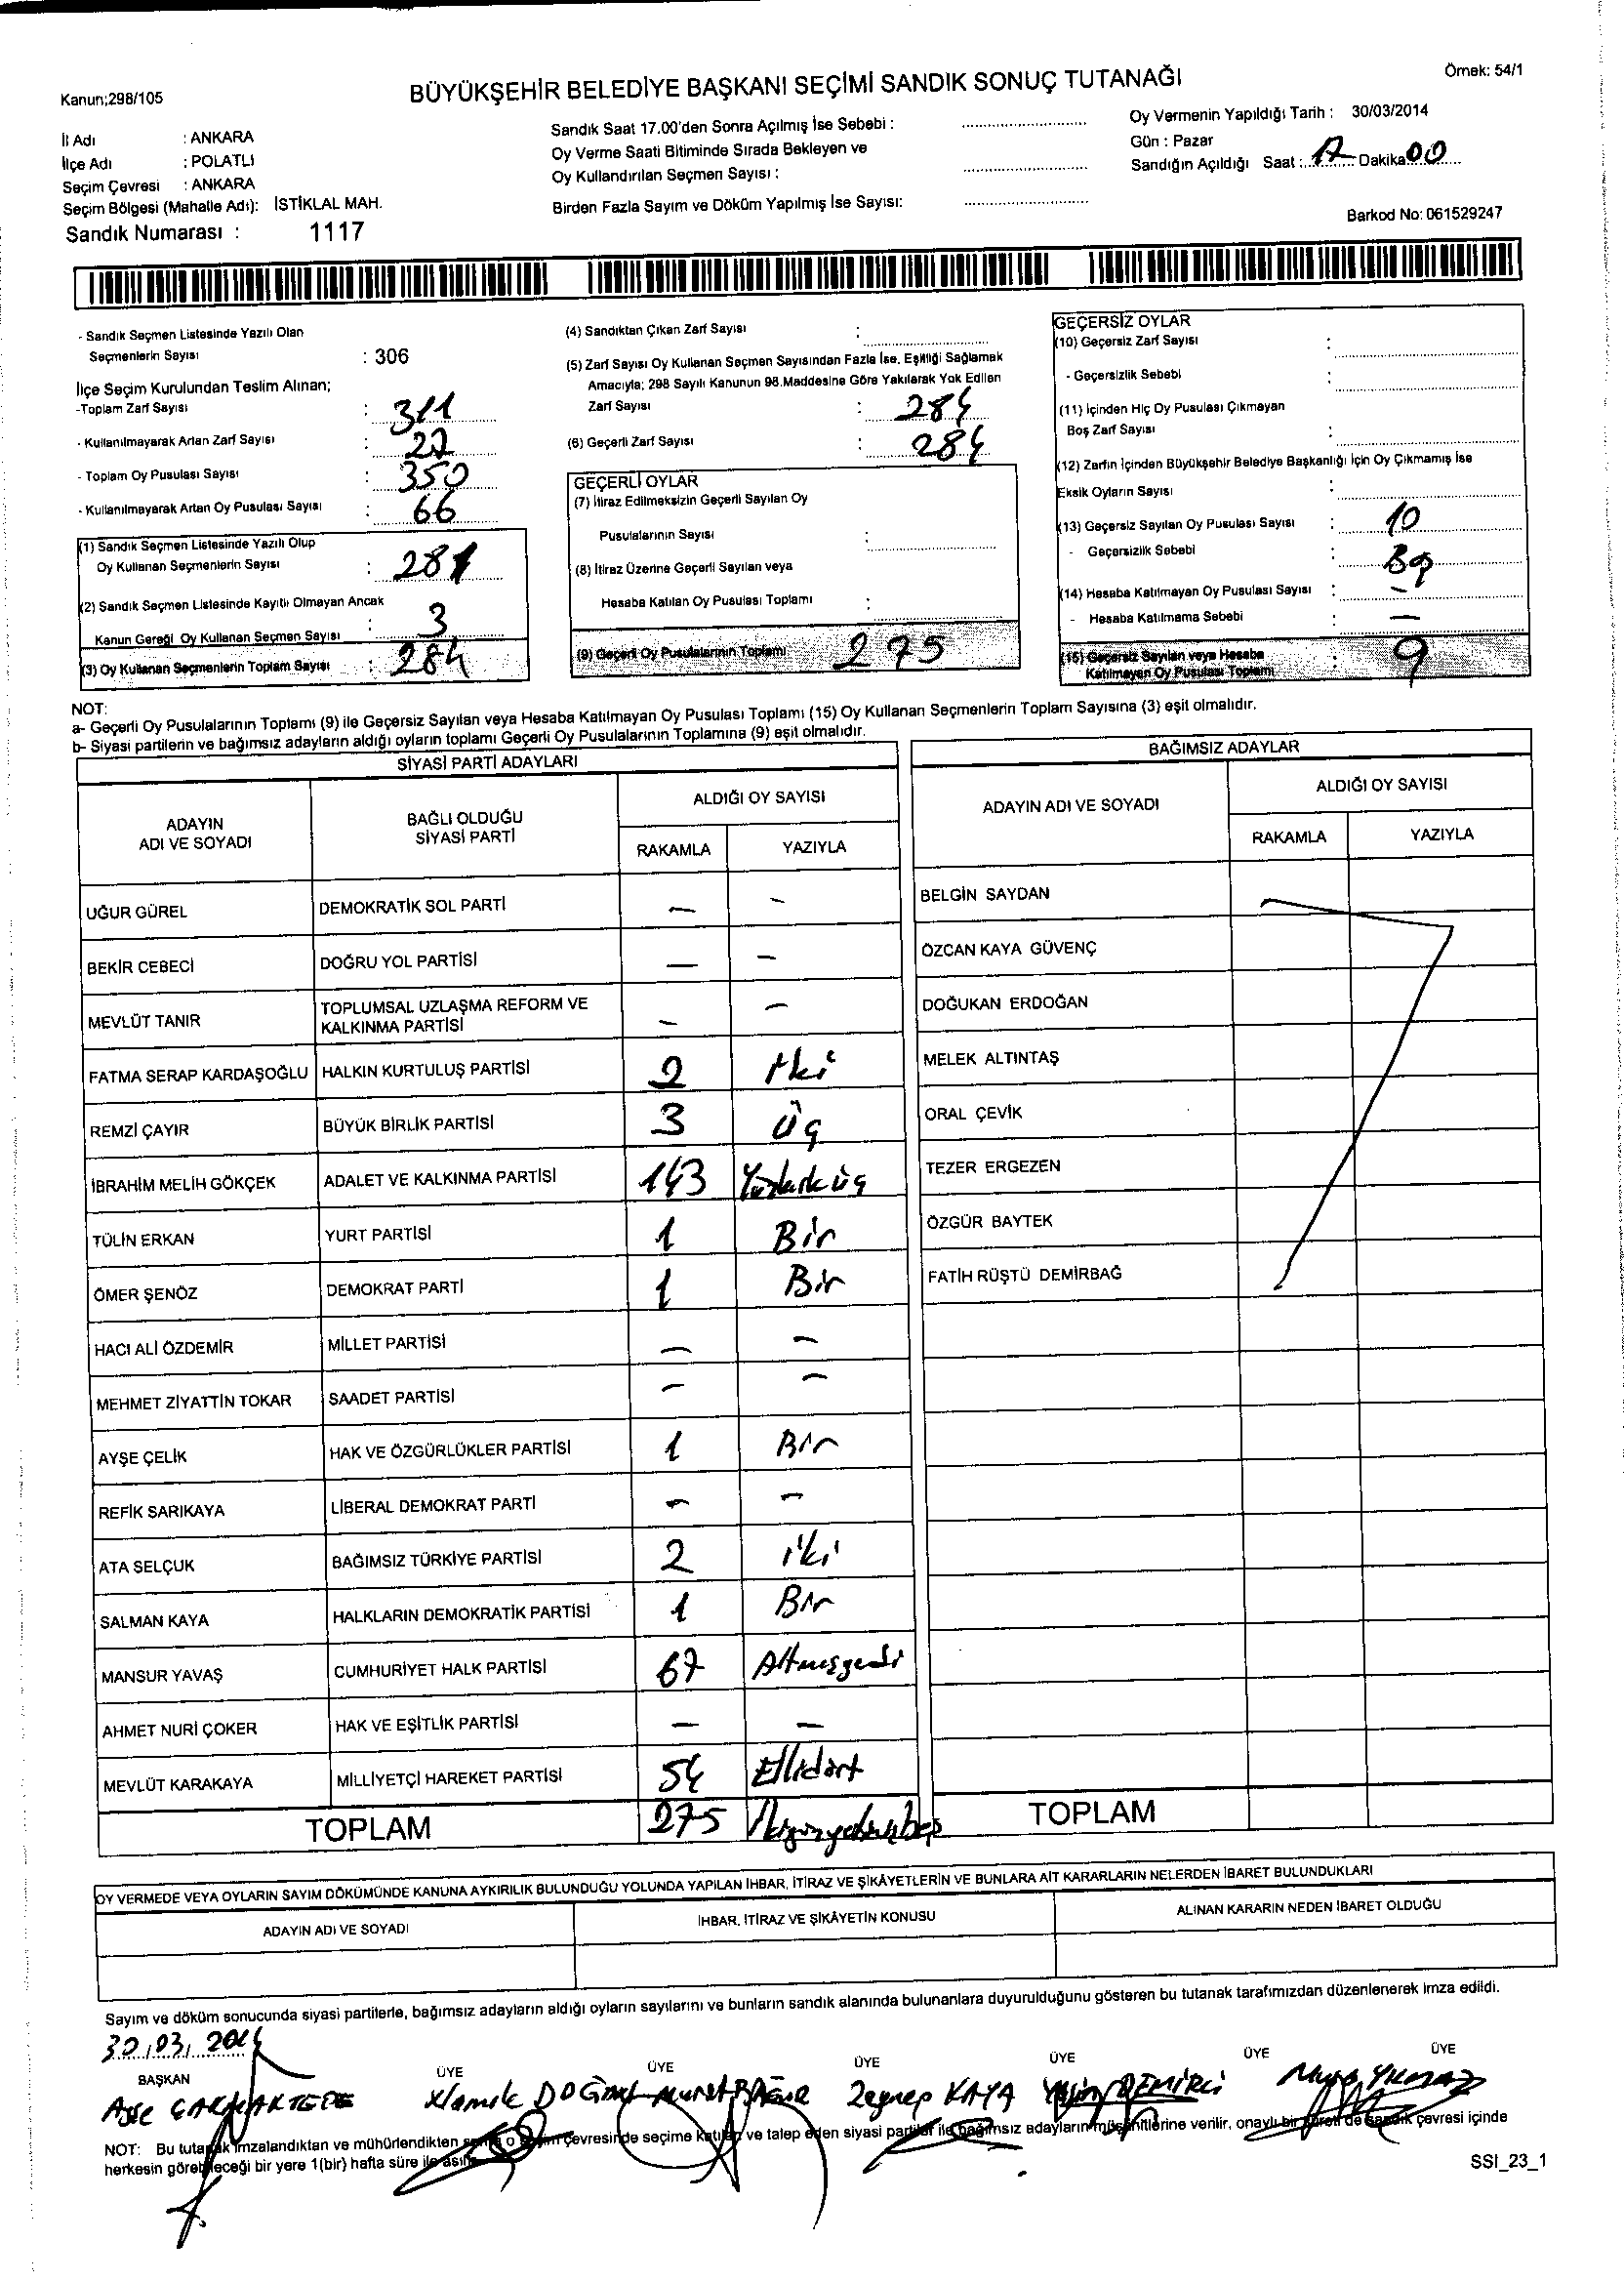 Kanun;298/105
BÜYÜKŞEHİR BELEDİYE BAŞKANI SEÇİMİ SANDIK SONUÇ TUTANAĞI
Örnek: 54/1
İl Adı : ANKARA
İlçe Adı : POLATLI
Seçim Çevresi : ANKARA
Seçim Bölgesi (Mahalle Adı): İSTİKLAL MAH.
Sandık Numarası : 1117
Sandık Saat 17.00'den Sonra Açılmış İse Sebebi :
Oy Verme Saati Bitiminde Sırada Bekleyen ve
Oy Kullandırılan Seçmen Sayısı :
Birden Fazla Sayım ve Döküm Yapılmış İse Sayısı:
Oy Vermenin Yapıldığı Tarih : 30/03/2014
Gün : Pazar
Sandığın Açıldığı Saat : 17 Dakika 00
Barkod No: 061529247
- Sandık Seçmen Listesinde Yazılı Olan
Seçmenlerin Sayısı : 306
İlçe Seçim Kurulundan Teslim Alınan;
-Toplam Zarf Sayısı : 311
- Kullanılmayarak Artan Zarf Sayısı : 27
- Toplam Oy Pusulası Sayısı : 350
- Kullanılmayarak Artan Oy Pusulası Sayısı : 66
(1) Sandık Seçmen Listesinde Yazılı Olup
Oy Kullanan Seçmenlerin Sayısı : 281
(2) Sandık Seçmen Listesinde Kayıtlı Olmayan Ancak
Kanun Gereği Oy Kullanan Seçmen Sayısı : 3
(3) Oy Kullanan Seçmenlerin Toplam Sayısı : 284
(4) Sandıktan Çıkan Zarf Sayısı :
(5) Zarf Sayısı Oy Kullanan Seçmen Sayısından Fazla İse, Eşitliği Sağlamak
Amacıyla; 298 Sayılı Kanunun 98.Maddesine Göre Yakılarak Yok Edilen
Zarf Sayısı : 284
(6) Geçerli Zarf Sayısı : 284
GEÇERLİ OYLAR
(7) İtiraz Edilmeksizin Geçerli Sayılan Oy
Pusulalarının Sayısı :
(8) İtiraz Üzerine Geçerli Sayılan veya
Hesaba Katılan Oy Pusulası Toplamı :
(9) Geçerli Oy Pusulalarının Toplamı 275
GEÇERSİZ OYLAR
(10) Geçersiz Zarf Sayısı :
- Geçersizlik Sebebi :
(11) İçinden Hiç Oy Pusulası Çıkmayan
Boş Zarf Sayısı :
(12) Zarfın İçinden Büyükşehir Belediye Başkanlığı İçin Oy Çıkmamış İse
Eksik Oyların Sayısı :
(13) Geçersiz Sayılan Oy Pusulası Sayısı : 10
- Geçersizlik Sebebi :
(14) Hesaba Katılmayan Oy Pusulası Sayısı : -
- Hesaba Katılmama Sebebi : —
(15) Geçersiz Sayılan veya Hesaba
Katılmayan Oy Pusulası Toplamı : 9
NOT:
a- Geçerli Oy Pusulalarının Toplamı (9) ile Geçersiz Sayılan veya Hesaba Katılmayan Oy Pusulası Toplamı (15) Oy Kullanan Seçmenlerin Toplam Sayısına (3) eşit olmalıdır.
b- Siyasi partilerin ve bağımsız adayların aldığı oyların toplamı Geçerli Oy Pusulalarının Toplamına (9) eşit olmalıdır.
SİYASİ PARTİ ADAYLARI
ADAYIN ADI VE SOYADI
BAĞLI OLDUĞU SİYASİ PARTİ
ALDIĞI OY SAYISI
RAKAMLA YAZIYLA
UĞUR GÜREL DEMOKRATİK SOL PARTİ - -
BEKİR CEBECİ DOĞRU YOL PARTİSİ - -
MEVLÜT TANIR TOPLUMSAL UZLAŞMA REFORM VE KALKINMA PARTİSİ - -
FATMA SERAP KARDAŞOĞLU HALKIN KURTULUŞ PARTİSİ 2 İki
REMZİ ÇAYIR BÜYÜK BİRLİK PARTİSİ 3 Üç
İBRAHİM MELİH GÖKÇEK ADALET VE KALKINMA PARTİSİ 143
TÜLİN ERKAN YURT PARTİSİ 1 Bir
ÖMER ŞENÖZ DEMOKRAT PARTİ 1 Bir
HACI ALİ ÖZDEMİR MİLLET PARTİSİ - -
MEHMET ZİYATTİN TOKAR SAADET PARTİSİ - -
AYŞE ÇELİK HAK VE ÖZGÜRLÜKLER PARTİSİ 1 Bir
REFİK SARIKAYA LİBERAL DEMOKRAT PARTİ - -
ATA SELÇUK BAĞIMSIZ TÜRKİYE PARTİSİ 2 iki
SALMAN KAYA HALKLARIN DEMOKRATİK PARTİSİ 1 Bir
MANSUR YAVAŞ CUMHURİYET HALK PARTİSİ 67 Altmışyedi
AHMET NURİ ÇOKER HAK VE EŞİTLİK PARTİSİ - -
MEVLÜT KARAKAYA MİLLİYETÇİ HAREKET PARTİSİ 54 Ellidört
TOPLAM 275
BAĞIMSIZ ADAYLAR
ADAYIN ADI VE SOYADI
ALDIĞI OY SAYISI
RAKAMLA YAZIYLA
BELGİN SAYDAN
ÖZCAN KAYA GÜVENÇ
DOĞUKAN ERDOĞAN
MELEK ALTINTAŞ
ORAL ÇEVİK
TEZER ERGEZEN
ÖZGÜR BAYTEK
FATİH RÜŞTÜ DEMİRBAĞ
TOPLAM
OY VERMEDE VEYA OYLARIN SAYIM DÖKÜMÜNDE KANUNA AYKIRILIK BULUNDUĞU YOLUNDA YAPILAN İHBAR, İTİRAZ VE ŞİKÂYETLERİN VE BUNLARA AİT KARARLARIN NELERDEN İBARET BULUNDUKLARI
ADAYIN ADI VE SOYADI
İHBAR, İTİRAZ VE ŞİKÂYETİN KONUSU
ALINAN KARARIN NEDEN İBARET OLDUĞU
Sayım ve döküm sonucunda siyasi partilerle, bağımsız adayların aldığı oyların sayılarını ve bunların sandık alanında bulunanlara duyurulduğunu gösteren bu tutanak tarafımızdan düzenlenerek imza edildi.
30.03.2014
BAŞKAN ÜYE ÜYE ÜYE ÜYE ÜYE ÜYE
Zeynep KAYA DEMİRCİ YILMAZ
NOT: Bu tutanak imzalandıktan ve mühürlendikten sonra o seçim çevresinde seçime katılan ve talep eden siyasi partiler ile bağımsız adayların müşahitlerine verilir, onaylı bir sureti de sandık çevresi içinde
herkesin görebileceği bir yere 1(bir) hafta süre ile asılır.
SSI_23_1